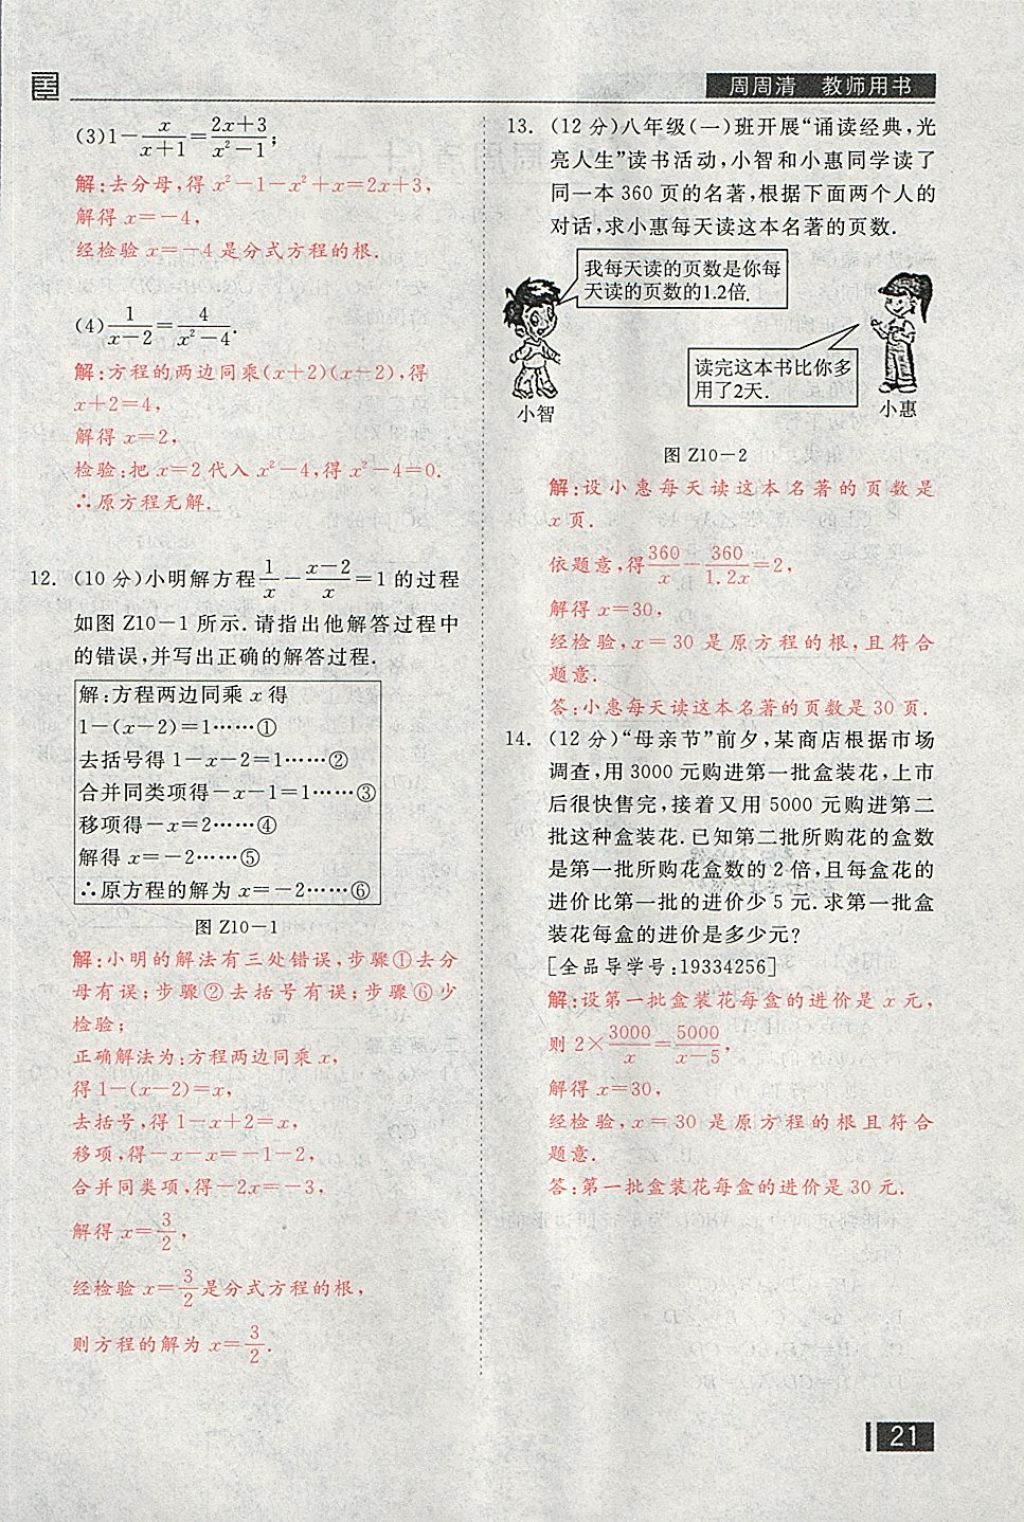 周周清　教师用书
(3)1－x/(x＋1)＝(2x＋3)/(x²－1);
解:去分母,得 x²－1－x²＋x＝2x＋3,
解得 x＝－4,
经检验 x＝－4 是分式方程的根.
(4)1/(x－2)＝4/(x²－4).
解:方程的两边同乘(x＋2)(x－2),得
x＋2＝4,
解得 x＝2,
检验:把 x＝2 代入 x²－4,得 x²－4＝0.
∴原方程无解.
12. (10 分)小明解方程1/x－(x－2)/x＝1 的过程
如图 Z10－1 所示.请指出他解答过程中
的错误,并写出正确的解答过程.
解:方程两边同乘 x 得
1－(x－2)＝1……①
去括号得 1－x－2＝1……②
合并同类项得－x－1＝1……③
移项得－x＝2……④
解得 x＝－2……⑤
∴原方程的解为 x＝－2……⑥
图 Z10－1
解:小明的解法有三处错误,步骤①去分
母有误;步骤②去括号有误;步骤⑥少
检验;
正确解法为:方程两边同乘 x,
得 1－(x－2)＝x,
去括号,得 1－x＋2＝x,
移项,得－x－x＝－1－2,
合并同类项,得－2x＝－3,
解得 x＝3/2,
经检验 x＝3/2是分式方程的根,
则方程的解为 x＝3/2.
13. (12 分)八年级(一)班开展“诵读经典,光
亮人生”读书活动,小智和小惠同学读了
同一本 360 页的名著,根据下面两个人的
对话,求小惠每天读这本名著的页数.
我每天读的页数是你每
天读的页数的1.2倍.
读完这本书比你多
用了2天.
小智
小惠
图 Z10－2
解:设小惠每天读这本名著的页数是
x 页.
依题意,得360/x－360/1.2x＝2,
解得 x＝30,
经检验,x＝30 是原方程的根,且符合
题意.
答:小惠每天读这本名著的页数是 30 页.
14. (12 分)“母亲节”前夕,某商店根据市场
调查,用 3000 元购进第一批盒装花,上市
后很快售完,接着又用 5000 元购进第二
批这种盒装花.已知第二批所购花的盒数
是第一批所购花盒数的 2 倍,且每盒花的
进价比第一批的进价少 5 元.求第一批盒
装花每盒的进价是多少元?
[全品导学号:19334256]
解:设第一批盒装花每盒的进价是 x 元,
则 2×3000/x＝5000/(x－5),
解得 x＝30,
经检验,x＝30 是原方程的根且符合
题意.
答:第一批盒装花每盒的进价是 30 元.
21